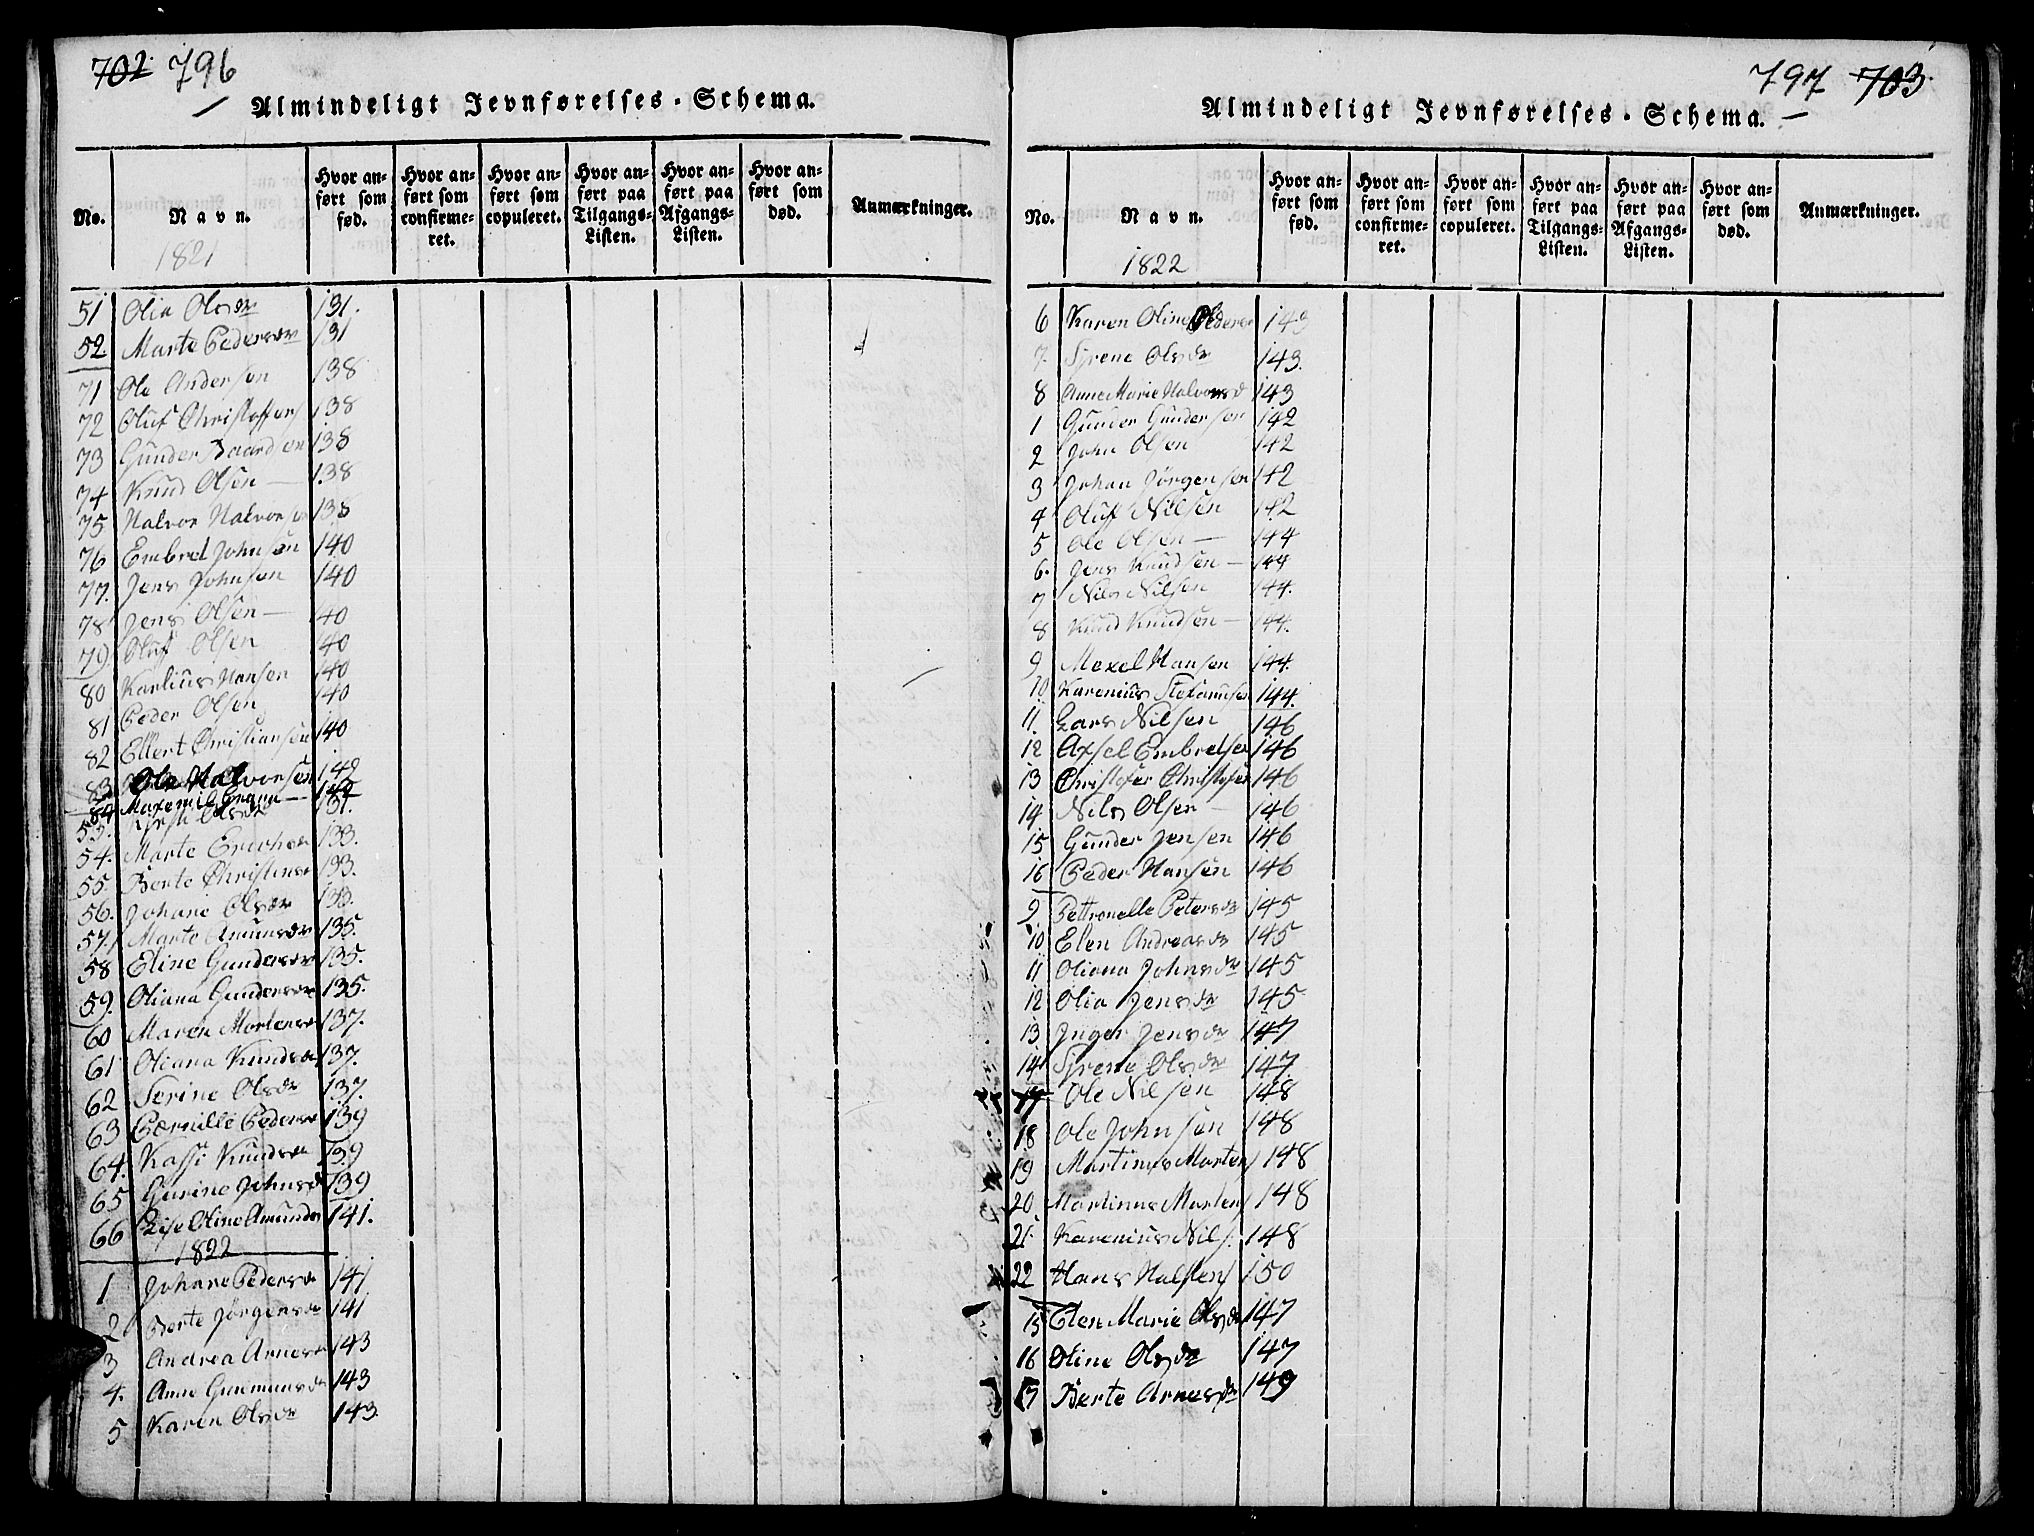 702. 796
Almindeligt Jevnførelses-Schema.
No.
Navn.
Hvor anført som fød.
Hvor anført som confirmeret.
Hvor anført som copuleret.
Hvor anført paa Tilgangs-Listen.
Hvor anført paa Afgangs-Listen.
Hvor anført som død.
Anmærkninger.
1821
51 Olia Olsdr 131.
52. Marte Pedersdr 131
71 Ole Andersen 138
72 Oluf Christoffers 138
73 Gunder Baardsen 138
74 Knud Olsen 138
75 Halvor Halvorsen 138
76 Embret Johnsen 140
77. Jens Johnsen 140
78 Jens Olsen 140
79. Oluf Olsen 140
80 Karlius Hansen 140
81 Peder Olsen 140
82 Ellert Christiansen 140
83 Ole Halvorsen 142
84 142
53. Olsdr 131.
54. Marte 133.
55. Berte Christensdr 133.
56. Johane Olsdr 133.
57. Marte Amunsdr 135.
58 Eline Gundersdr 135.
59. Oliana Gundersdr 135.
60 Maren Mortensdr 137.
61 Oliana Knudsdr 137.
62 Serine Olsdr 137.
63 Pernille Pedersdr 139
64. Kassi Knudsdr 139
65 Gurine Johnsd 139
66 Lise Oline Amundsdr 141.
1822
1 Johane Pedersdr 141
2 Berte Jørgensdr 141
3 Andrea Arnesdr 143
4. Anne Gunmunsdr 143
5 Karen Olsdr 143.
797 703.
Almindeligt Jevnførelses-Schema.
No.
Navn.
Hvor anført som fød.
Hvor anført som confirmeret.
Hvor anført som copuleret.
Hvor anført paa Tilgangs-Listen.
Hvor anført paa Afgangs-Listen.
Hvor anført som død.
Anmærkninger.
1822
6 Karen Oline Peders 143
7. Syrene Olsdr 143.
8 Anne Marie Halvorsd 143
1 Gunder Gundersen 142
2 John Olsen 142
3 Johan Jörgensen 142
4 Oluf Nilsen 142
5 Ole Olsen 144
6. Jens Knudsen 144
7 Nils Nilsen 144.
8 Knud Knudsen 144.
9 Mexel Hansen 144.
10 Karenius Stefansen 144.
11. Lars Nilsen 146
12 Axsel Embretsen 146
13 Christofer Christofersen 146
14 Nils Olsen 146
15 Gunder Jensen 146
16 Peder Hansen 146
9 Pettronelle Petersdr 145
10 Elen Andreasdr 145
11 Oliana Johnsdr 145
12 Olia Jensdr 145
13 Inger Jensdr 147
14 Syrene Olsdr 147
17 Ole Nilsen 148
18 Ole Johnsen 148
19 Martinus Morten 148
20 Martinus Morten 148
21. Karenius Nils. 148
22 Hans Halsten 150
15 Elen Marie Olsdr 147
16 Oline Olsdr 147
17 Berte Arnesdr 149